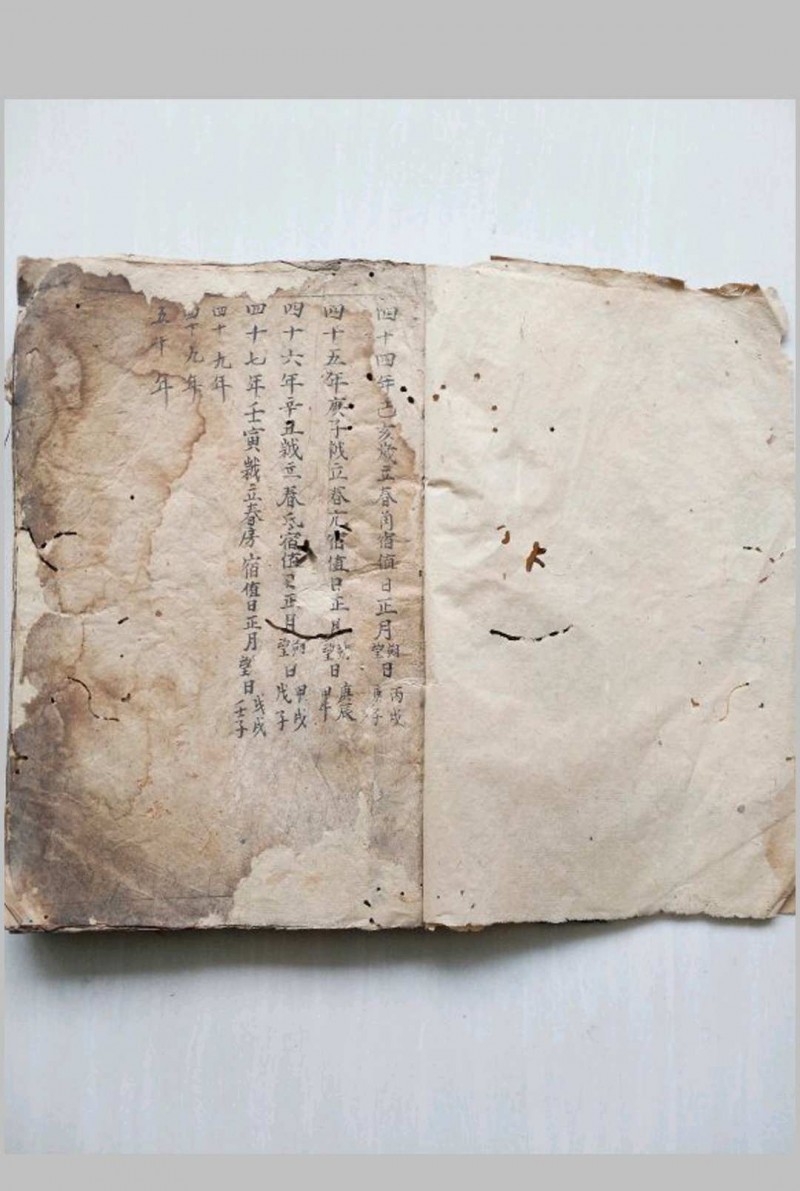 四十四年己亥歲立春角宿值日正月朔望日丙戌庚子
四十五年庚子歲立春亢宿值日正月朔望日庚辰甲午
四十六年辛丑歲立春氐宿值日正月朔望日甲戌戊子
四十七年壬寅歲立春房宿值日正月望日戊戌壬子
四十九年
四十九年
五十年